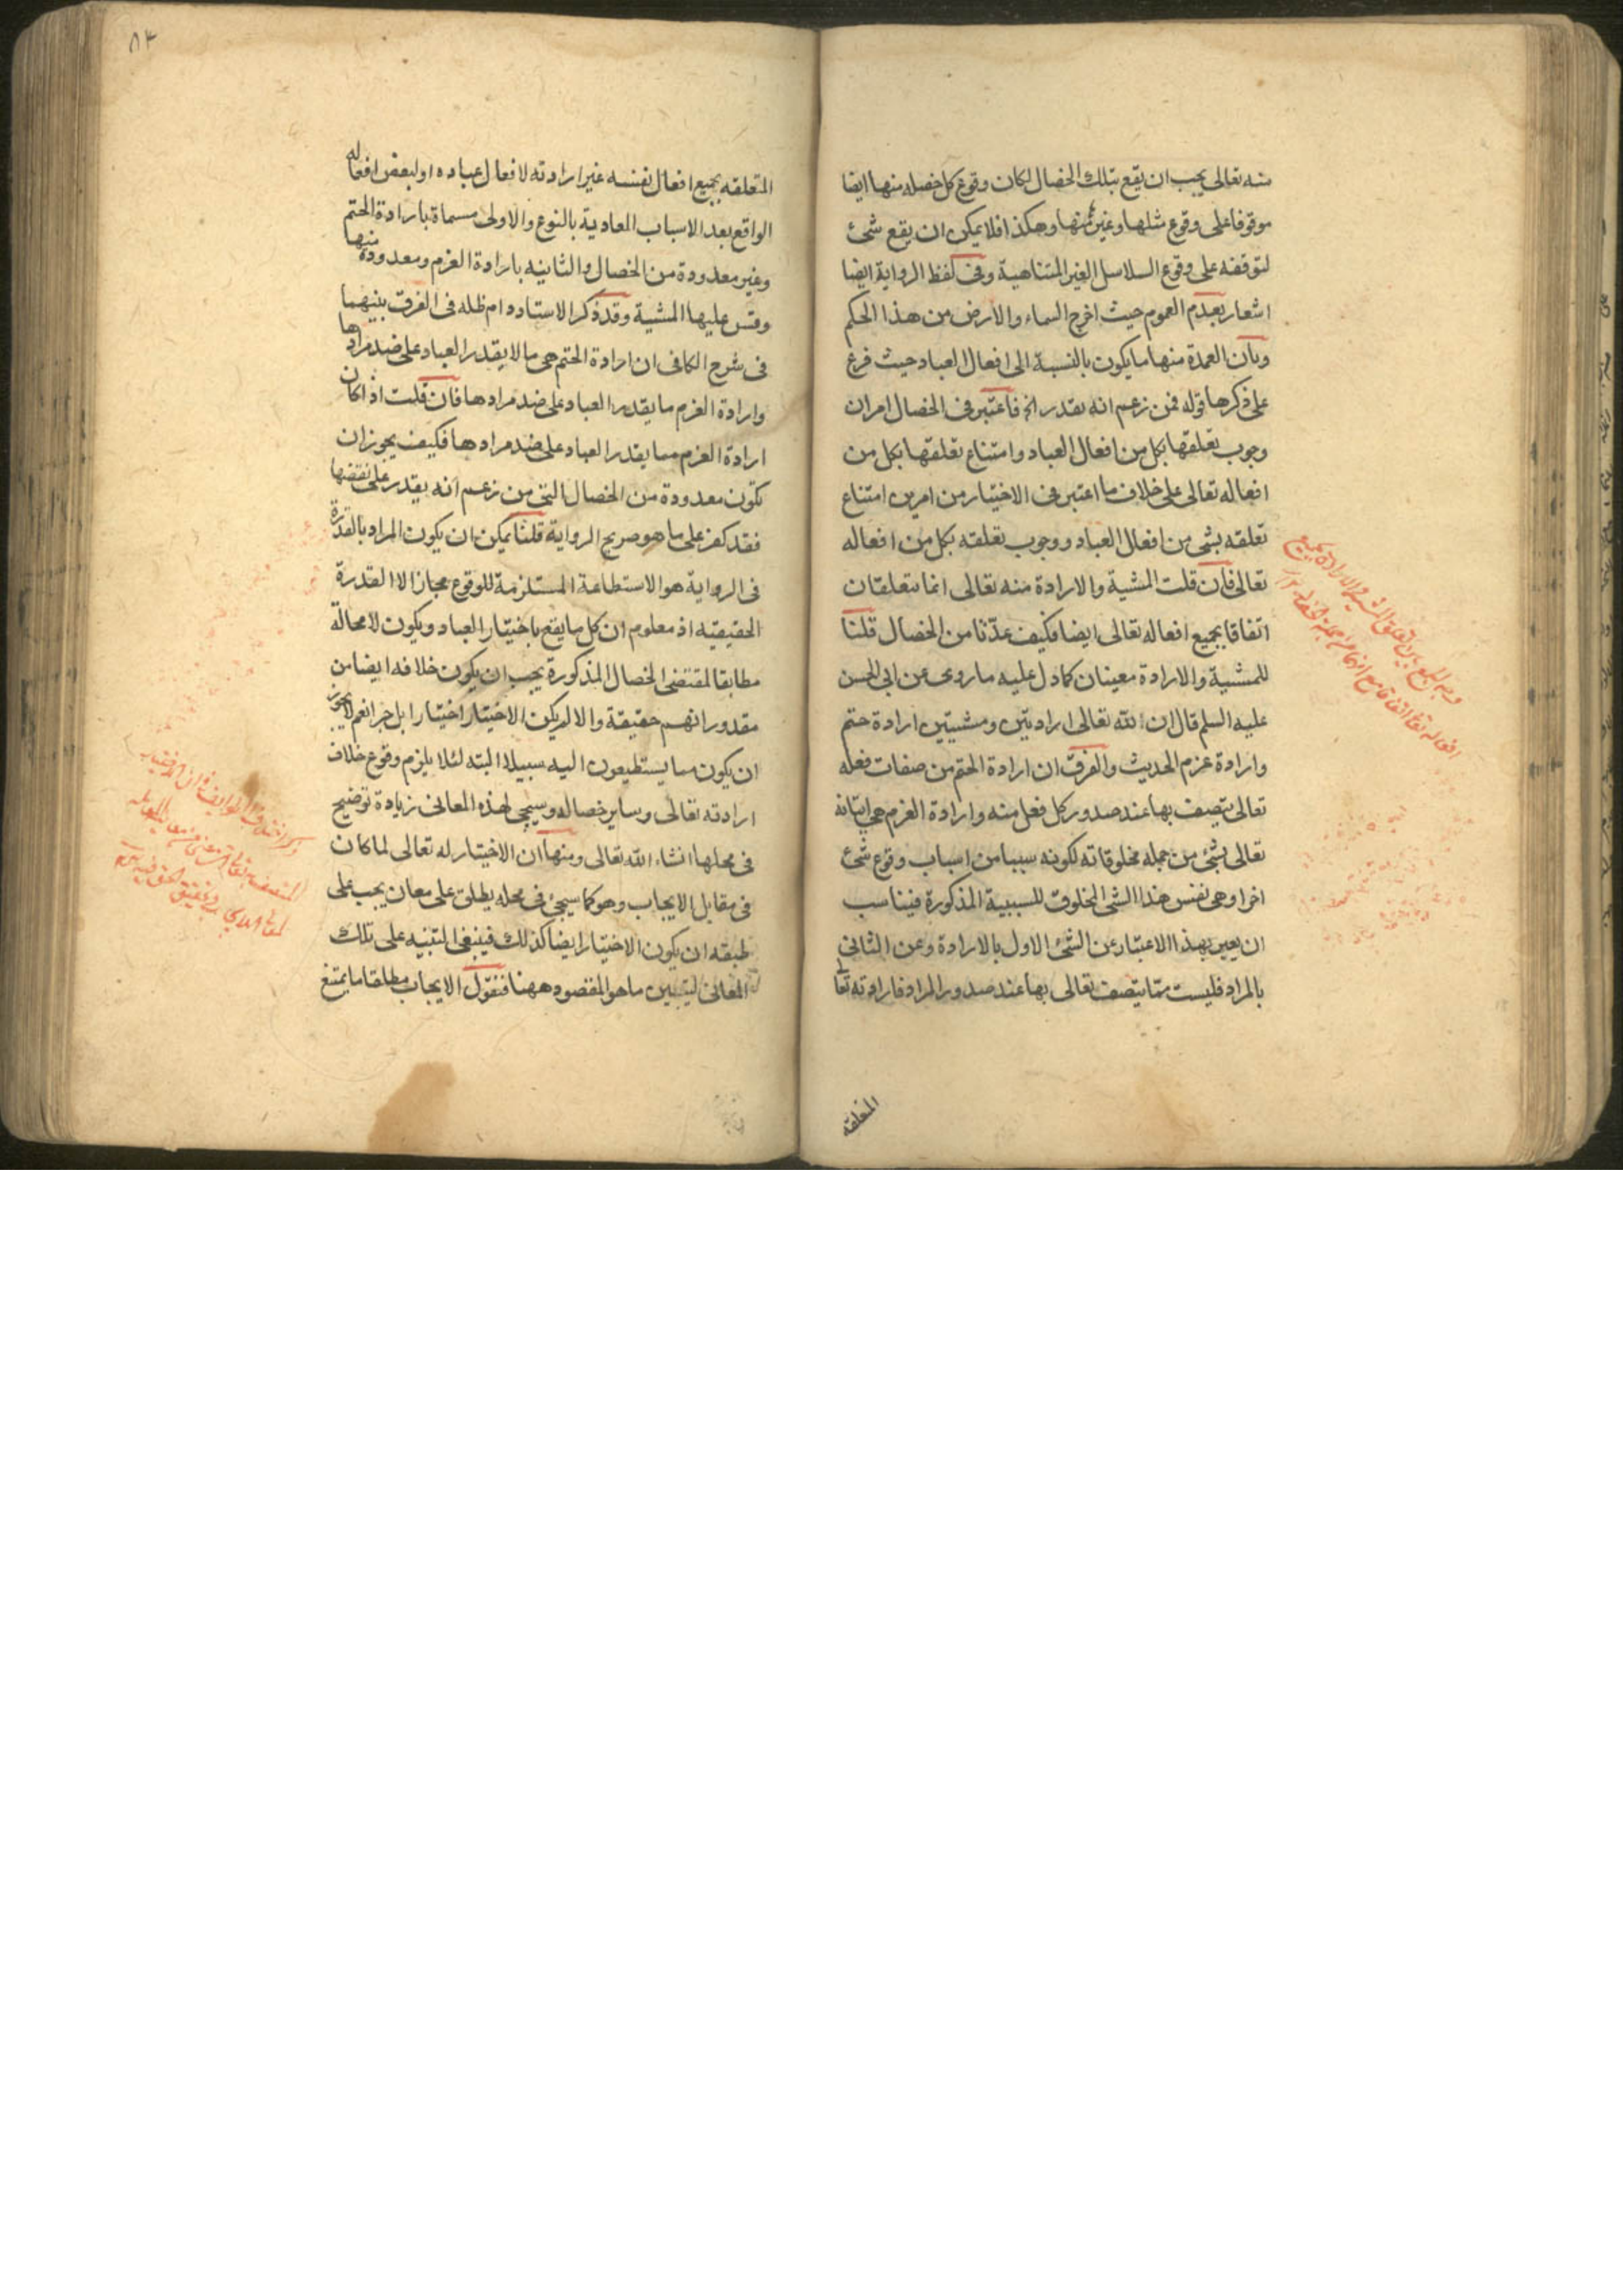 منه تعالى يجب ان يقع بتلك الخصال لكان وقوع كل خصله منها ايضا
موقوفا على وقوع مثلها وغيره منها وهكذا فلا يمكن ان يقع شئ
لتوقفه على وقوع السلاسل الغير المتناهية وفى لفظ الرواية ايضا
اشعار بعدم العموم حيث اخرج السماء والارض من هذا الحكم
وبان العمدة منها ما يكون بالنسبة الى افعال العباد حيث فرع
على ذكرها قوله فمن زعم انه يقدر الخ فاعتبر فى الخصال امران
وجوب تعلقها بكل من افعال العباد وامتناع تعلقها بكل من
افعاله تعالى على خلاف ما اعتبر فى الاختيار من امرين امتناع
تعلقه بشئ من افعال العباد ووجوب تعلقه بكل من افعاله
تعالى فان قلت المشية والارادة منه تعالى انما تتعلقان
اتفاقا بجميع افعاله تعالى ايضا فكيف عدّتا من الخصال قلنا
للمشية والارادة معنيان كما دل عليه ما روى عن ابى الحسن
عليه السلم قال ان لله تعالى ارادتين ومشيتين ارادة حتم
وارادة عزم الحديث والفرق ان ارادة الحتم من صفات فعله
تعالى يتصف بها عند صدور كل فعل منه وارادة العزم هى اتيانه
تعالى بشئ من جمله مخلوقاته لكونه سببا من اسباب وقوع شئ
اخر اوهى نفس هذا الشى المخلوق للسببية المذكورة فيناسب
ان يعبر بهذا الاعتبار عن الشئ الاول بالارادة وعن الثانى
بالمراد فليست مما يتصف تعالى بها عند صدور المراد فارادته تعا
المتعلقه
وجه الجمع بين تعلق المشية والارادة بجميع
افعاله تعا اتفاقا مع انهما من جملة الخصال
٨٣
المتعلقه بجميع افعال نفسه غير ارادته لافعال عباده او لبعض افعاله
الواقع بعد الاسباب العادية بالنوع والاولى مسماة بارادة الحتم
وغير معدودة من الخصال والثانيه بارادة العزم ومعدودة منها
وقس عليها المشية وقد ذكر الاستاد دام ظله فى الفرق بينهما
فى شرح الكافى ان ارادة الحتم هى ما لا يقدر العباد على ضد مرادها
وارادة العزم ما يقدر العباد على ضد مرادها فان قلت اذا كان
ارادة العزم مما يقدر العباد على ضد مرادها فكيف يجوز ان
تكون معدودة من الخصال التى من زعم انه يقدر على نقضها
فقد كفر على ما هو صريح الرواية قلنا يمكن ان يكون المراد بالقدرة
فى الرواية هو الاستطاعة المستلزمة للوقوع مجازا لا القدرة
الحقيقيه اذ معلوم ان كل ما يقع باختيار العباد ويكون لا محالة
مطابقا لمقتضى الخصال المذكورة يجب ان يكون خلافه ايضا من
مقدوراتهم حقيقة والا لم يكن الاختيار اختيارا بل جبرا نعم لا يجوز
ان يكون مما يستطيعون اليه سبيلا البته لئلا يلزم وقوع خلاف
ارادته تعالى وساير خصاله وسيجى لهذه المعانى زيادة توضيح
فى محلها انشاء الله تعالى ومنها ان الاختيار له تعالى لما كان
فى مقابل الايجاب وهو كما سيجئ فى محله يطلق على معان يجب على
طبقه ان يكون الاختيار ايضا كذلك فينبغى التنبيه على تلك
المعانى ليتبين ما هو المقصود ههنا فنقول الايجاب مطلقا ما يمتنع